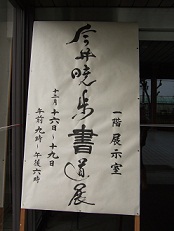 一階 展示室
今井暁歩書道展
十二月 十六日～十九日
午前九時～午後六時